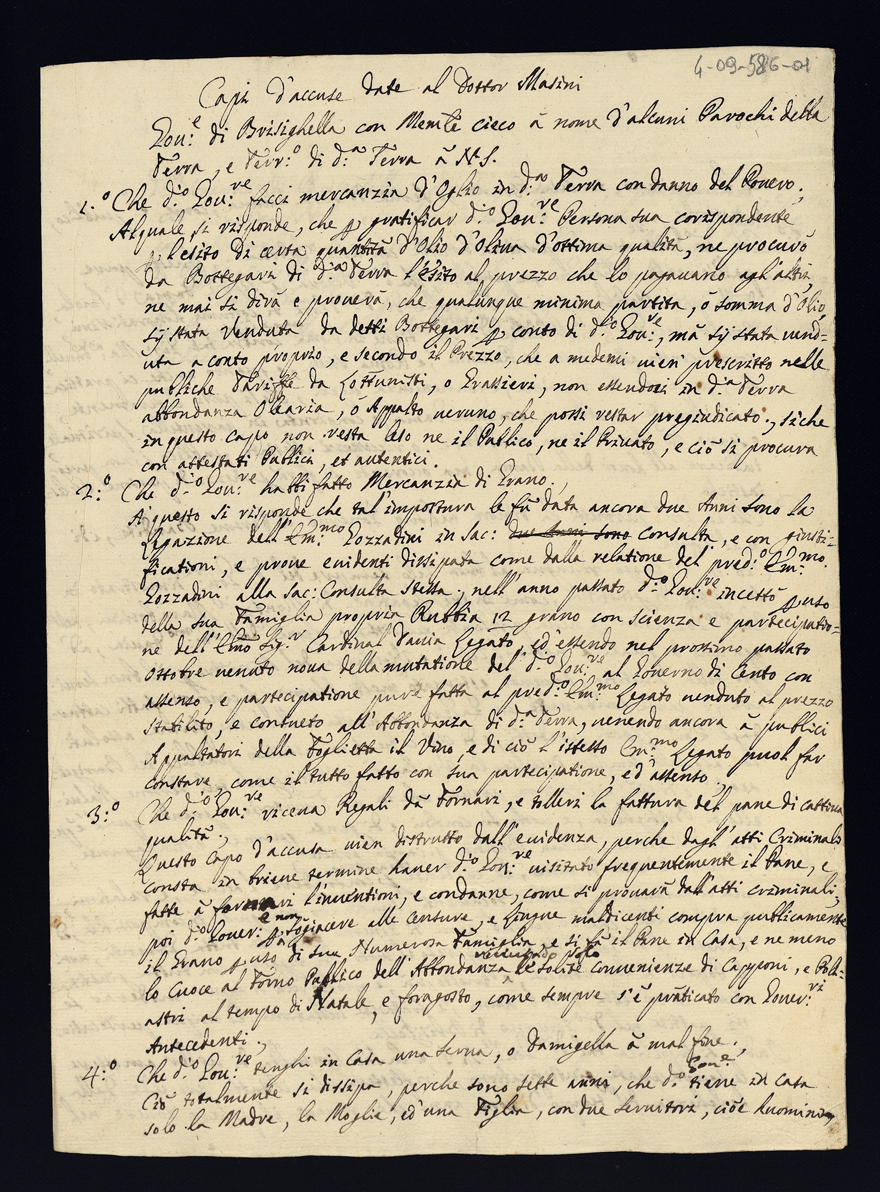 4-09-586-01
Capi d'accuse date al Dottor Masini
Gov:e di Brisighella con Mem:le cieco à nome d'alcuni Parochi della
Terra, e Terr:o di d:a Terra à N.S.
1:o Che d:o Gov:re facci mercanzia d'Oglio in d:a Terra con danno del Povero.,
Al quale si risponde, che p gratificar d:o Gov:re Persona sua corispondente
p l'esito di certa quantità d'Olio d'Oliva d'ottima qualità, ne procurò
da Bottegari di d:a Terra l'esito al prezzo che lo pagavano agl'altri
ne mai si dirà e proverà, che qualunque minima partita, ò somma d'Olio
sij stata venduta da detti Bottegari p conto di d:o Gov:re, mà sij stata vend=
uta a conto proprio, e secondo il Prezzo, che a medemi vien prescritto nelle
publiche Tariffe da Cottunisti, o Grassieri, non essendoci in d:a Terra
abbondanza Olearia, ò Appalto veruno, che possi restar pregiudicato., siche
in questo capo non resta leso ne il Publico, ne il Privato, e ciò si procura
con attestati Publici, et autentici.
2:o Che d:o Gov:re habbi fatto Mercanzia di Grano.,
A questo si risponde che tal'impostura le fù data ancora due Anni sono la
Legazione dell'Em:mo Gozzadini in Sac: due Anni sono Consulta, e con giusti=
ficationi, e prove evidenti dissipata come dalla relatione del pred:o Em:mo
Gozzadini alla Sac: Consulta stessa., nell'anno passato d:o Gov:re incettò p uso
della sua Famiglia propria Rubbia 12 grano con scienza e partecipatio=
ne dell'Emo Sig:r Cardinal Davia Legato, ed'essendo nel prossimo passato
Ottobre venuto nova della mutatione del d:o Gov:re al Governo di Cento con
assenso, e partecipatione pure fatta al pred:o Em:mo Legato venduto al prezzo
statilito, e consueto all'Abbondanza di d:a Terra, vendendo ancora à publici
Appaltatori della foglietta il Vino, e di ciò l'istesso Em:mo Legato puol far
constare, come il tutto fatto con sua partecipatione, ed'assenso.,
3:o Che d:o Gov:re riceva Regali dà Fornari, e tolleri la fattura del pane di cattiva
qualità.,
Questo capo d'accusa vien distrutto dall'evidenza, perche dagl'atti Criminali
consta in brieve termine haver d:o Gov:re visitato frequentemente il Pane, e
fatte à fornari l'inventioni, e condanne, come si provarà dall'atti criminali,
poi d:o Gover: p non sogiacere alle censure, e lingue maldicenti compra publicamente
il Grano p uso di sua Numerosa Famiglia, e si fà il Pane in Casa, e ne meno
lo Cuoce al Forno Publico dell'Abbondanza ricevendo solo le solite convenienze di Capponi, e Poll=
astri al tempo di Natale, e feragosto, come sempre s'è praticato con Gover:ri
Antecedenti.,
4:o Che d:o Gov:re tenghi in Casa una serva, o Damigella à mal fine.,
Ciò totalmente si dissipa, perche sono sette anni, che d:o Gov:e tiene in casa
solo la Madre, la Moglie, ed'una Figlia, con due servitori, cioè huomini,